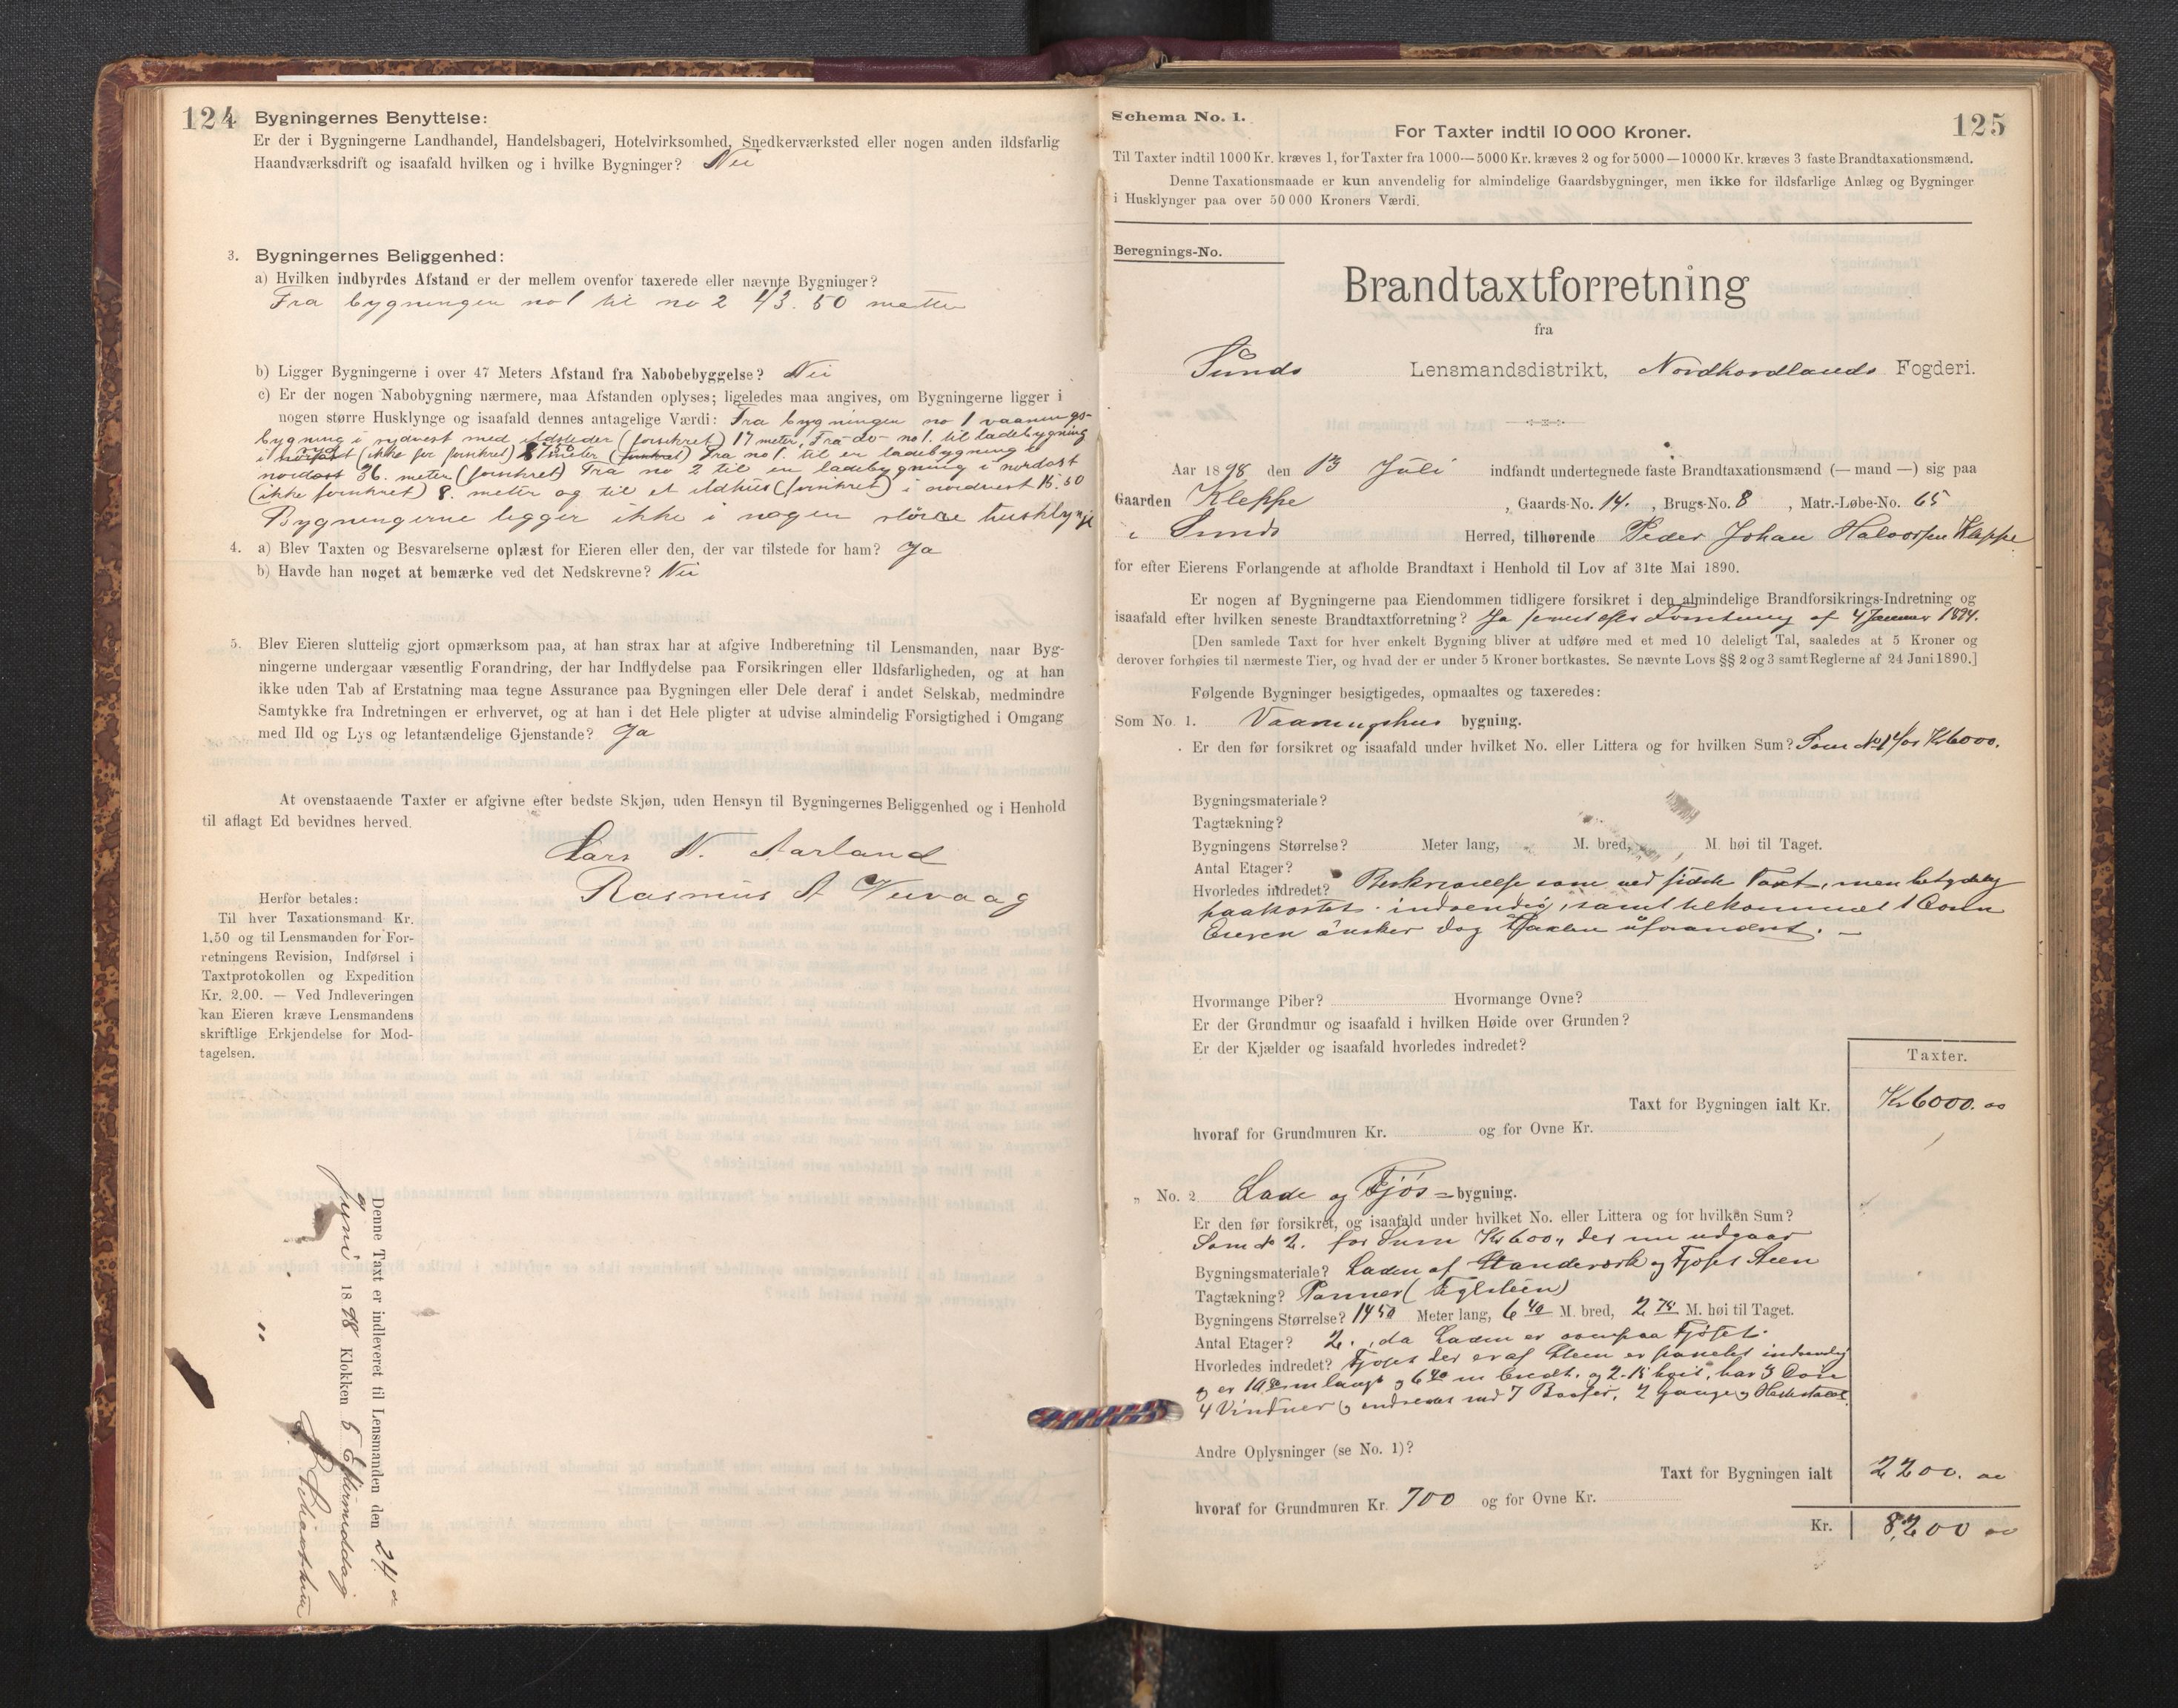 124
Bygningernes Benyttelse:
Er der i Bygningerne Landhandel, Handelsbageri, Hotelvirksomhed, Snedkerværksted eller nogen anden ildsfarlig
Haandværksdrift og isaafald hvilken og i hvilke Bygninger? Nei
3. Bygningernes Beliggenhed:
a) Hvilken indbyrdes Afstand er der mellem ovenfor taxerede eller nævnte Bygninger?
Fra bygningen no 1 til no 2 43.50 metter
b) Ligger Bygningerne i over 47 Meters Afstand fra Nabobebyggelse? Nei
c) Er der nogen Nabobygning nærmere, maa Afstanden oplyses; ligeledes maa angives, om Bygningerne ligger i
nogen større Husklynge og isaafald dennes antagelige Værdi: Fra bygningen no 1 vaanings-
bygning i sydvest med ildsteder (forsikret) 17 meter, Fra do no 1. til ladebygning
i (ikke forsikret) meter Fra no 1. til en ladebygning i
nordost 36. meter (forsikret) Fra no 2 til en ladebygning i nordost
(ikke forsikret) 8. metter og til et ildhus (forsikret) i nordvest 15.50
Bygningerne ligger ikke i nogen större husklynge
4. a) Blev Taxten og Besvarelserne oplæst for Eieren eller den, der var tilstede for ham? Ja
b) Havde han noget at bemærke ved det Nedskrevne? Nei
5. Blev Eieren sluttelig gjort opmærksom paa, at han strax har at afgive Indberetning til Lensmanden, naar Byg-
ningerne undergaar væsentlig Forandring, der har Indflydelse paa Forsikringen eller Ildsfarligheden, og at han
ikke uden Tab af Erstatning maa tegne Assurance paa Bygningen eller Dele deraf i andet Selskab, medmindre
Samtykke fra Indretningen er erhvervet, og at han i det Hele pligter at udvise almindelig Forsigtighed i Omgang
med Ild og Lys og letantændelige Gjenstande? Ja
At ovenstaaende Taxter er afgivne efter bedste Skjøn, uden Hensyn til Bygningernes Beliggenhed og i Henhold
til aflagt Ed bevidnes herved.
Lars N. Aarland
Rasmus A
Herfor betales:
Til hver Taxationsmand Kr.
1,50 og til Lensmanden for For-
retningens Revision, Indførsel i
Taxtprotokollen og Expedition
Kr. 2.00. — Ved Indleveringen
kan Eieren kræve Lensmandens
skriftlige Erkjendelse for Mod-
tagelsen.
Denne Taxt er indleveret til Lensmanden den 24
Juni 1898 Klokken 5 Eftermiddag
Schema No. 1.
125
For Taxter indtil 10 000 Kroner.
Til Taxter indtil 1000 Kr. kræves 1, for Taxter fra 1000—5000 Kr. kræves 2 og for 5000—10000 Kr. kræves 3 faste Brandtaxationsmænd.
Denne Taxationsmaade er kun anvendelig for almindelige Gaardsbygninger, men ikke for ildsfarlige Anlæg og Bygninger
i Husklynger paa over 50 000 Kroners Værdi.
Beregnings-No.
Brandtaxtforretning
fra
Sunds Lensmandsdistrikt, Nordhordlands Fogderi.
Aar 1898 den 13 Juli indfandt undertegnede faste Brandtaxationsmænd (— mand —) sig paa
Gaarden Kleppe, Gaards-No. 14., Brugs-No. 8, Matr.-Løbe-No. 65
i Sunds Herred, tilhørende Peder Johan Halvorsen Kleppe
for efter Eierens Forlangende at afholde Brandtaxt i Henhold til Lov af 31te Mai 1890.
Er nogen af Bygningerne paa Eiendommen tidligere forsikret i den almindelige Brandforsikrings-Indretning og
isaafald efter hvilken seneste Brandtaxtforretning? Ja senest efter Forretning af 4 Januar 1894.
[Den samlede Taxt for hver enkelt Bygning bliver at udføre med et med 10 deleligt Tal, saaledes at 5 Kroner og
derover forhøies til nærmeste Tier, og hvad der er under 5 Kroner bortkastes. Se nævnte Lovs §§ 2 og 3 samt Reglerne af 24 Juni 1890.]
Følgende Bygninger besigtigedes, opmaaltes og taxeredes:
Som No. 1. Vaaningshus bygning.
Er den før forsikret og isaafald under hvilket No. eller Littera og for hvilken Sum? Som No 1 for Kr 6000.
Bygningsmateriale?
Tagtækning?
Bygningens Størrelse? Meter lang, M. bred, M. høi til Taget.
Antal Etager?
Hvorledes indredet? Beskrivelse som ved sidste Taxt, men betydelig
paakostet indvendig, samt tilkommet 1 Ovn
Eieren önsker dog Taxten uforandret. —
Hvormange Piber? Hvormange Ovne?
Er der Grundmur og isaafald i hvilken Høide over Grunden?
Er der Kjælder og isaafald hvorledes indredet?
Taxter.
Taxt for Bygningen ialt Kr. Kr 6000.00
hvoraf for Grundmuren Kr. og for Ovne Kr.
„ No. 2 Lade og Fjøs = bygning.
Er den før forsikret, og isaafald under hvilket No. eller Littera og for hvilken Sum?
Som No 2. for Sum Kr 600,, der nu udgaar
Bygningsmateriale? Laden af Standerverk og Fjøset Steen
Tagtækning? Panner (Teglsteen)
Bygningens Størrelse? 14 50 Meter lang, 6 40 M. bred, 2 75 M. høi til Taget.
Antal Etager? 2., da Laden er ovenpaa Fjøset.
Hvorledes indredet? Fjøset der er af Steen er panelet indvendig
og er m langt og 6 40 m bredt, og 2.15 høit, har 3 Döre
4 Vinduer og indredet med 7 Baaser, 2 Gange og Hestestald.
Andre Oplysninger (se No. 1)?
Taxt for Bygningen ialt 2200. 00
hvoraf for Grundmuren Kr. 700 og for Ovne Kr.
Kr. 8200 00